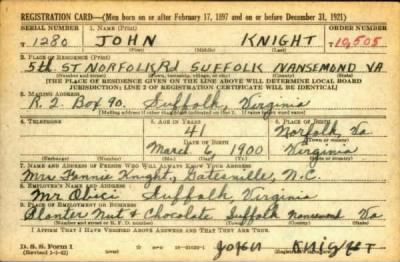 REGISTRATION CARD—(Men born on or after February 17, 1897 and on or before December 31, 1921)
SERIAL NUMBER 1. NAME (Print) ORDER NUMBER
T 1280 JOHN KNIGHT T 10,505
(First) (Middle) (Last)
2. PLACE OF RESIDENCE (Print)
5th ST NORFOLK Rd SUFFOLK NANSEMOND VA
(Number and street) (Town, township, village, or city) (County) (State)
[THE PLACE OF RESIDENCE GIVEN ON THE LINE ABOVE WILL DETERMINE LOCAL BOARD
JURISDICTION; LINE 2 OF REGISTRATION CERTIFICATE WILL BE IDENTICAL]
3. MAILING ADDRESS
R. 2. Box 90. Suffolk, Virginia
[Mailing address if other than place indicated on line 2. If same insert word same]
4. TELEPHONE 5. AGE IN YEARS 6. PLACE OF BIRTH
41 Norfolk, Va
DATE OF BIRTH
March 6, 1900 Virginia
(Exchange) (Number) (Mo.) (Day) (Yr.) (State or country)
7. NAME AND ADDRESS OF PERSON WHO WILL ALWAYS KNOW YOUR ADDRESS
Mrs Fannie Knight, Gatesville, N.C.
8. EMPLOYER'S NAME AND ADDRESS
Mr Obici Suffolk, Virginia
9. PLACE OF EMPLOYMENT OR BUSINESS
Planter Nut & Chocolate Suffolk Nansemond Va
(Number and street or R. F. D. number) (Town) (County) (State)
I AFFIRM THAT I HAVE VERIFIED ABOVE ANSWERS AND THAT THEY ARE TRUE.
D. S. S. Form 1
(Revised 1-1-42) (over) John Knight